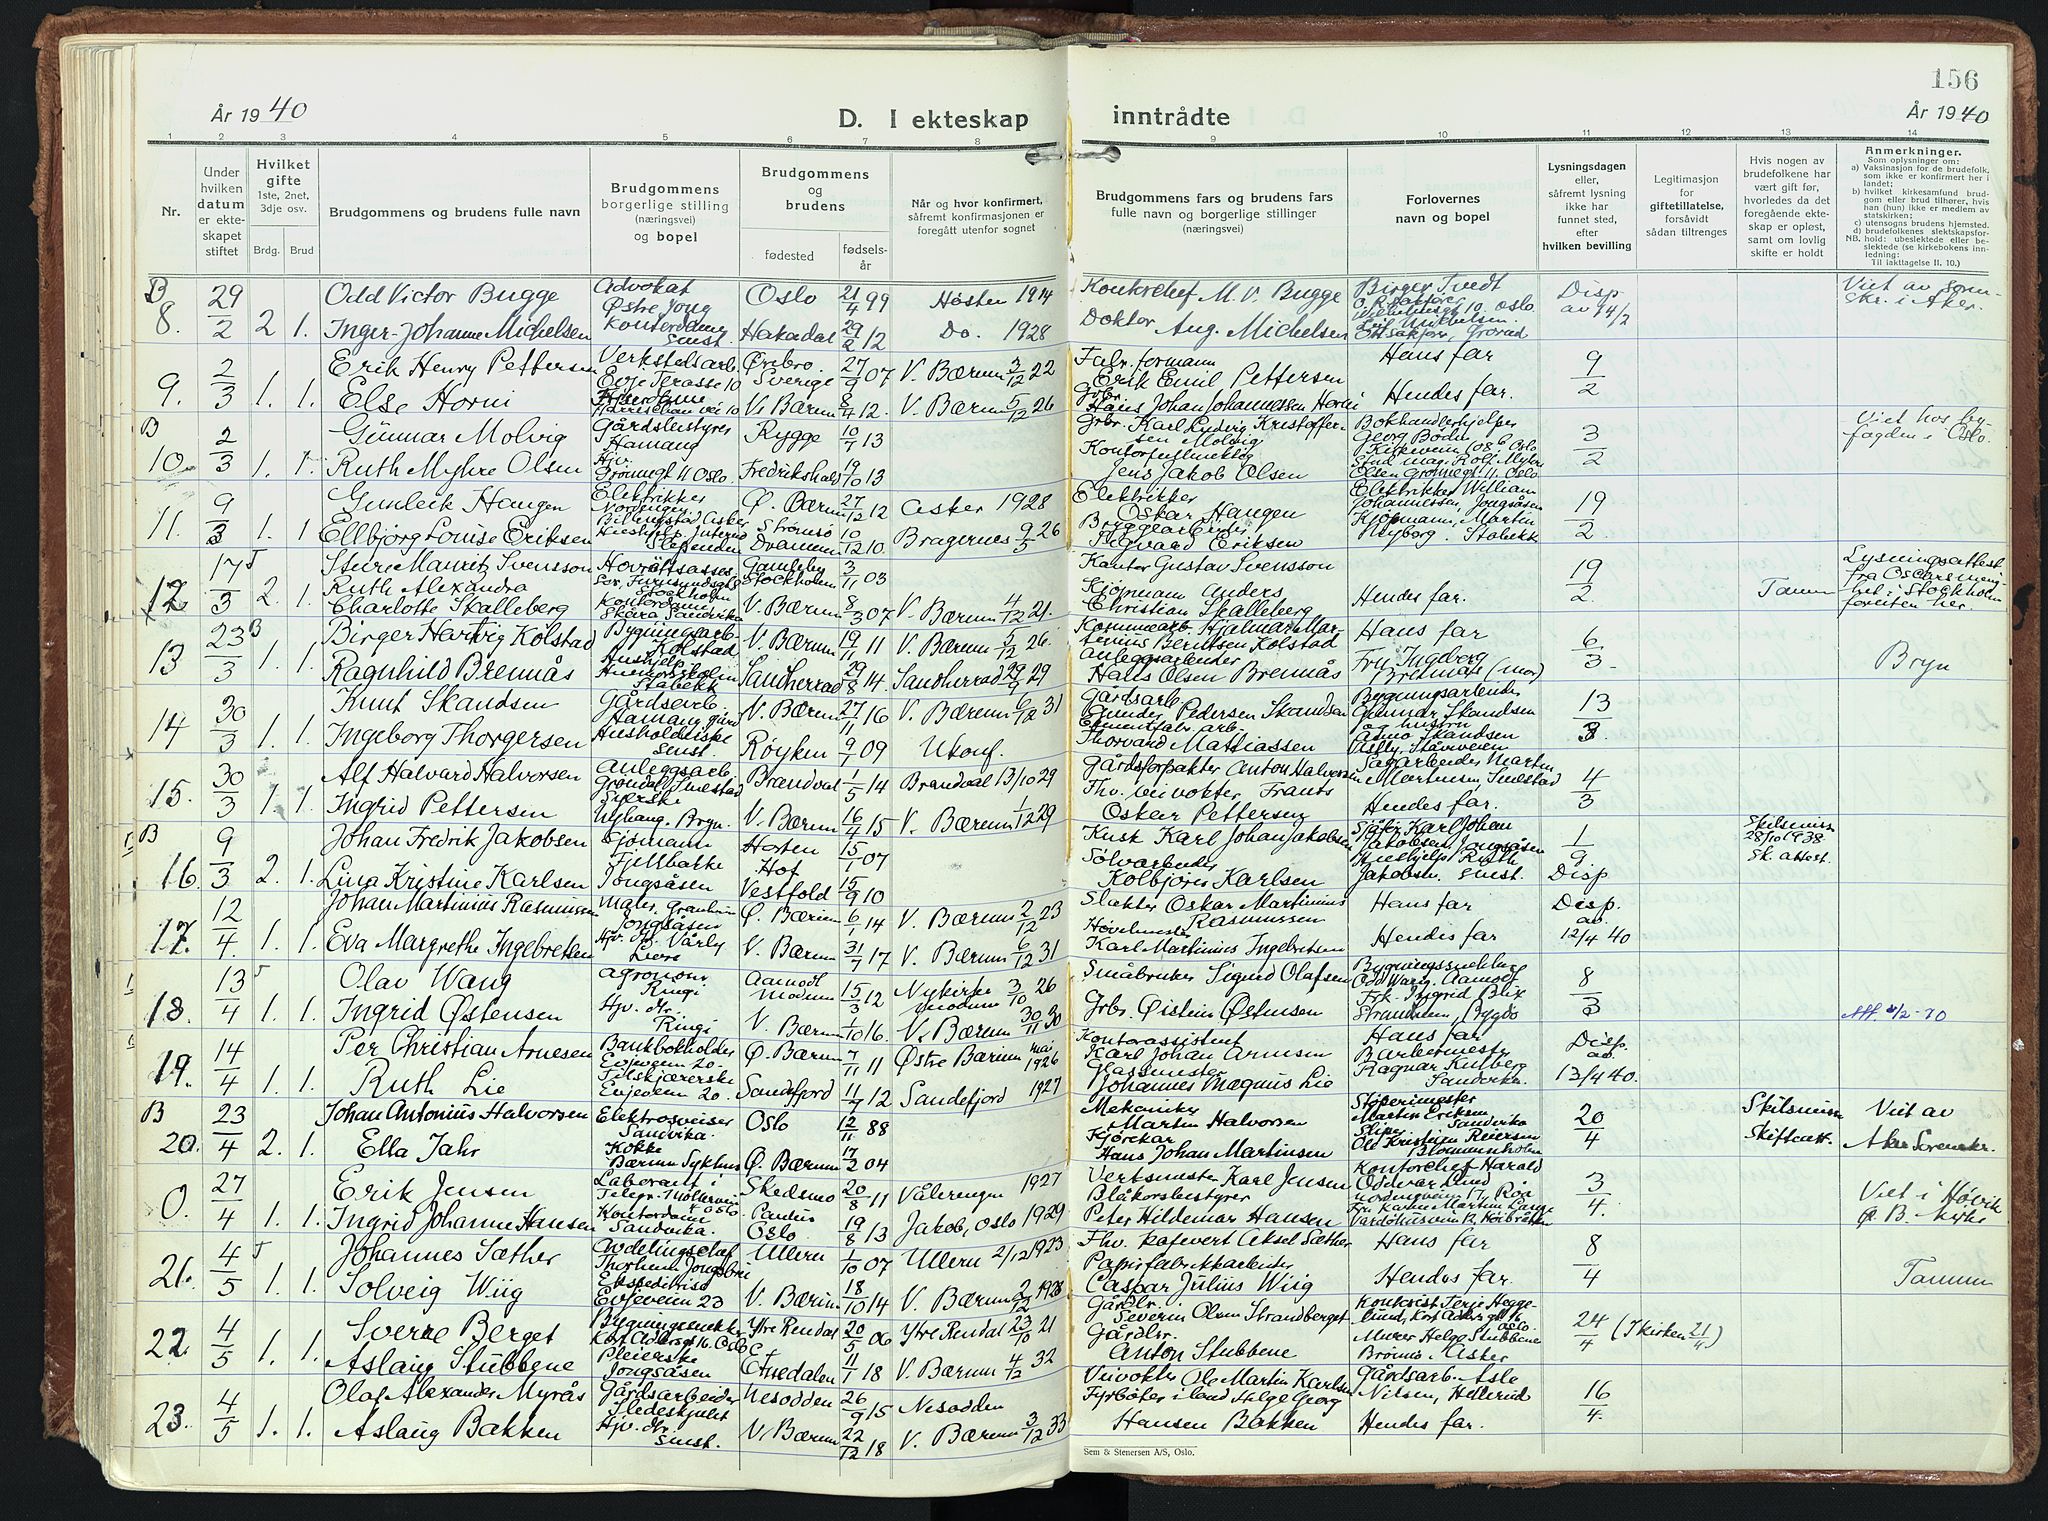 156
År 1940
D. I ekteskap
inntrådte
År 1940
1 2 3 4 5 6 7 8 9 10 11 12 13 14
Nr.
Under hvilken datum er ekteskapet stiftet
Hvilket gifte
1ste, 2net, 3dje osv.
Brdg. Brud
Brudgommens og brudens fulle navn
Brudgommens borgerlige stilling (næringsvei) og bopel
Brudgommens og brudens
fødested
fødselsår
Når og hvor konfirmert, såfremt konfirmasjonen er foregått utenfor sognet
Brudgommens fars og brudens fars fulle navn og borgerlige stillinger (næringsvei)
Forlovernes navn og bopel
Lysningsdagen eller, såfremt lysning ikke har funnet sted, efter hvilken bevilling
Legitimasjon for giftetillatelse, forsåvidt sådan tiltrenges
Hvis nogen av brudefolkene har vært gift før, hvorledes da det foregående ekteskap er oplest, samt om lovlig skifte er holdt
Anmerkninger.
Som oplysninger om:
a) Vaksinasjon for de brudefolk, som ikke er konfirmert her i landet;
b) hvilket kirkesamfund brudgom eller brud tilhører, hvis han (hun) ikke er medlem av statskirken;
c) utensogns brudens hjemsted.
d) brudefolkenes slektskapsforhold: ubeslektede eller beslektede (se kirkebokens innledning:
NB.
Til iakttagelse II. 10.)
B 8. 29/2 2 1. Odd Victor Bugge Advokat Østre Jong Oslo 21/4 99 Høsten 1914 Kontorchef M. V. Bugge Birger Tvedt Disp av 14/2
Inger-Johanne Michelsen Kontordame Smst. Hakadal 29/2 12 Do. 1928 Doktor Aug. Michelsen
9. 2/3 1. 1. Erik Henry Pettersen Verkstedsarb. Evje Terasse 10 Örebro. Sverige 27/9 07 V. Bærum 3/12 22 Fabr. formann Erik Emil Pettersen Hans far 9/2
Else Horni V. Bærum 8/4 12. V. Bærum 5/12 26 Gbr. Hans Johan Johannessen Horni Hendes far.
B 10. 2/3 1. 1. Gunnar Molvig Gårdsbestyrer Hamang Rygge 10/7 13 Gbr. Karl Ludvig Kristoffersen Molvig Bokhandlerhjelper Georg Bodin 3/2 Viet hos byfogden i Oslo.
Ruth Myhre Olsen Hjv. Grønnegt 11 Oslo. Fredrikshald 19/10 13 Kontorfullmektig Jens Jakob Olsen
11. 9/3 1. 1 Gunleik Haugen Elektriker Ø. Bærum 27/12 12 Asker 1928 Elektriker Oskar Haugen Elektriker William Johannessen, Jongsåsen 19/2
Ellbjørg Louise Eriksen Slependen Strømsø Drammen 10/12 10. Bragernes 9/5 26 Bryggearbeider Sigvard Eriksen Kjøpmann, Martin Høyborg. Stabekk
12. 17/3 2. 1. Sture Mauritz Svensson Hovrättsasses. Stockholm Gamleby Stockholm 3/11 03 Kantor Gustav Svensson 19/2. Lysningsattest fra Oscars menighet i Stockholm forevist her.
Ruth Alexandra Charlotte Skalleberg Kontordame Skara Sandviken V. Bærum 8/3 07 V. Bærum 4/12 21. Kjøpmann Anders Christian Skalleberg Hendes far.
13 23/3 B 1. 1. Birger Hartvig Kolstad Bygningsarb. Kolstad V. Bærum 19/11 11 V. Bærum 5/12 26. Hjalmar Martinius Berntsen Kolstad Hans far 6/3. Bryn
Ragnhild Brennås Hushjelp Stabekk Sandherrad 29/8 14. Sandherrad 29/9 29 Anleggsarbeider Hans Olsen Brennås Fru Ingeborg Brennås (mor)
14 30/3 1. 1. Knut Skandsen Gårdsarb. Hamang gård V. Bærum 27/11 16 V. Bærum 6/12 31 Gårdsarb. Gunder Pedersen Skandsen Bygningsarbeider Gunnar Skandsen 13/3.
Ingeborg Thorgersen Husholderske Smst Røyken 9/7 09 Ukonf. Cementfabr. arb. Thorvard Mathiassen
15. 30/3 1. 1. Alf Halvard Halvorsen Anleggsarb. Grøndal Smestad Brandval 1/5 14 Brandval 13/10 29 Gårdsforpakter Anton Halvorsen Sagarbeider Martin Martinsen, Smestad 4/3
Ingrid Pettersen Syerske Nyhaug. Bryn. V. Bærum 16/4 15 V. Bærum 1/12 29 Fhv. veivokter Frants Oskar Pettersen Hendes far.
B 16. 9/3 2. 1. Johan Fredrik Jakobsen Sjømann Fjellbakke Horten 15/1 07 Kusk Karl Johan Jakobsen Sjåfør Karl Johan Jakobsen, Jongsåsen 1/9 Disp Skilsmisse 28/10 1938 Sk. attest.
Lina Kristine Karlsen Jongsåsen Hof Vestfold 15/9 10 Sølvarbeider Kolbjørn Karlsen Hushjelp Ruth Jakobsen. Smst.
17. 12/4. 1. 1. Johan Martinius Rasmussen Maler. Jongsåsen Ø. Bærum 6/1 14 V. Bærum 2/12 23 Slakter Oskar Martinius Rasmussen Hans far Disp. av. 12/4 40
Eva Margrethe Ingebretsen V. Bærum 31/7 17 V. Bærum 6/12 31 Høvelmester Karl Martinius Ingebretsen Hendes far
18. 13/4 1. 1. Olav Wang Agronom Ringi Aamodt Modum 15/3 12 Nykirke Modum 3/10 26 Småbruker Sigurd Olafsen Bygningssnekker Odd Wang. Aamodt 8/3
Ingrid Østensen Hjv. Ringi V. Bærum 1/10 16. V. Bærum 30/11 30 Gbr. Øistein Østensen Frk. Ingrid Blix Strandheim, Bygdø
19. 14/4 1. 1. Per Christian Arnesen Bankbokholder Evjeveien 20. Ø. Bærum 7/11 11 Østre Bærum mai 1926 Kontorassistent Karl Johan Arnesen Hans far Disp. av 13/4 40.
Ruth Lie Tilskjærerske Evjeveien 20. Sandefjord 11/7 12 Sandefjord 1927 Glassmester Johannes Magnus Lie Barbermester Ragnar Sandvika
B 20. 23/4 2. 1. Johan Antonius Halvorsen Elektrosveiser Sandvika. Oslo 12/11 88 Mekaniker Martin Halvorsen Støperimester Martin Eriksen, Sandvika 20/4 Skilsmisse Skifteatt. Viet av Aker Sorenskr.
Ella Jahr Kokke Bærum Sykehus Ø. Bærum 17/2 04 Kjørekar Hans Johan Martinsen Ole Kristian Reiersen Blommenholm
0. 27/4 1. 1. Erik Jensen Laborant i Telegr. Skedsmo 20/8 11 Vålerengen 1927 Vertsmester Karl Jensen Kontorchef Harald Oddvar Lund 3/4. Viet i Høvik Ø. B. kirke
Ingrid Johanne Hansen Kontordame Sandvika. Oslo. 19/8 13 Jakob, Oslo 1929 Blåkorsbestyrer Peter Hildemar Hansen
21. 4/5 1. 1. Johannes Sæther Avdelingschef Ullern 1/10 07 Ullern 2/12 1923 Fhv. Aksel Sæther Hans far 8/4
Solveig Wiig Ekspeditrise Evjeveien 23 V. Bærum 18/10 14 V. Bærum 2/12 1928 Papirfabrikkarbeider Caspar Julius Wiig Hendes far.
22. 4/5 1. 1. Sverre Berget Bygningssnekker Ytre Rendal 20/5 06 Ytre Rendal 23/10 21 Gårdbr. Severin Olsen Strandberget Kontorist Terje Heggelund, Kort Adelers gt 16 Oslo. 24/4 (I kirken 21/4)
Aslaug Stubbene Pleierske Jongsåsen 11/1 18 V. Bærum 4/12 32 Gårdbr. Anton Stubbene Murer Helge Stubbene Asker
23. 4/5 1. 1. Olaf Alexander Myrås Gårdsarbeider Nesodden 26/9 15 Nesodden Veivokter Ole Martin Karlsen Gårdsarb. Asle Nilsen, Hellerud 16/4.
Aslaug Bakken Hjv. Smst. V. Bærum 22/12 18 V. Bærum 3/12 33 Fyrbøter i land Helge Georg Hansen Bakken Hendes far.
Sem & Stenersen A/S, Oslo.